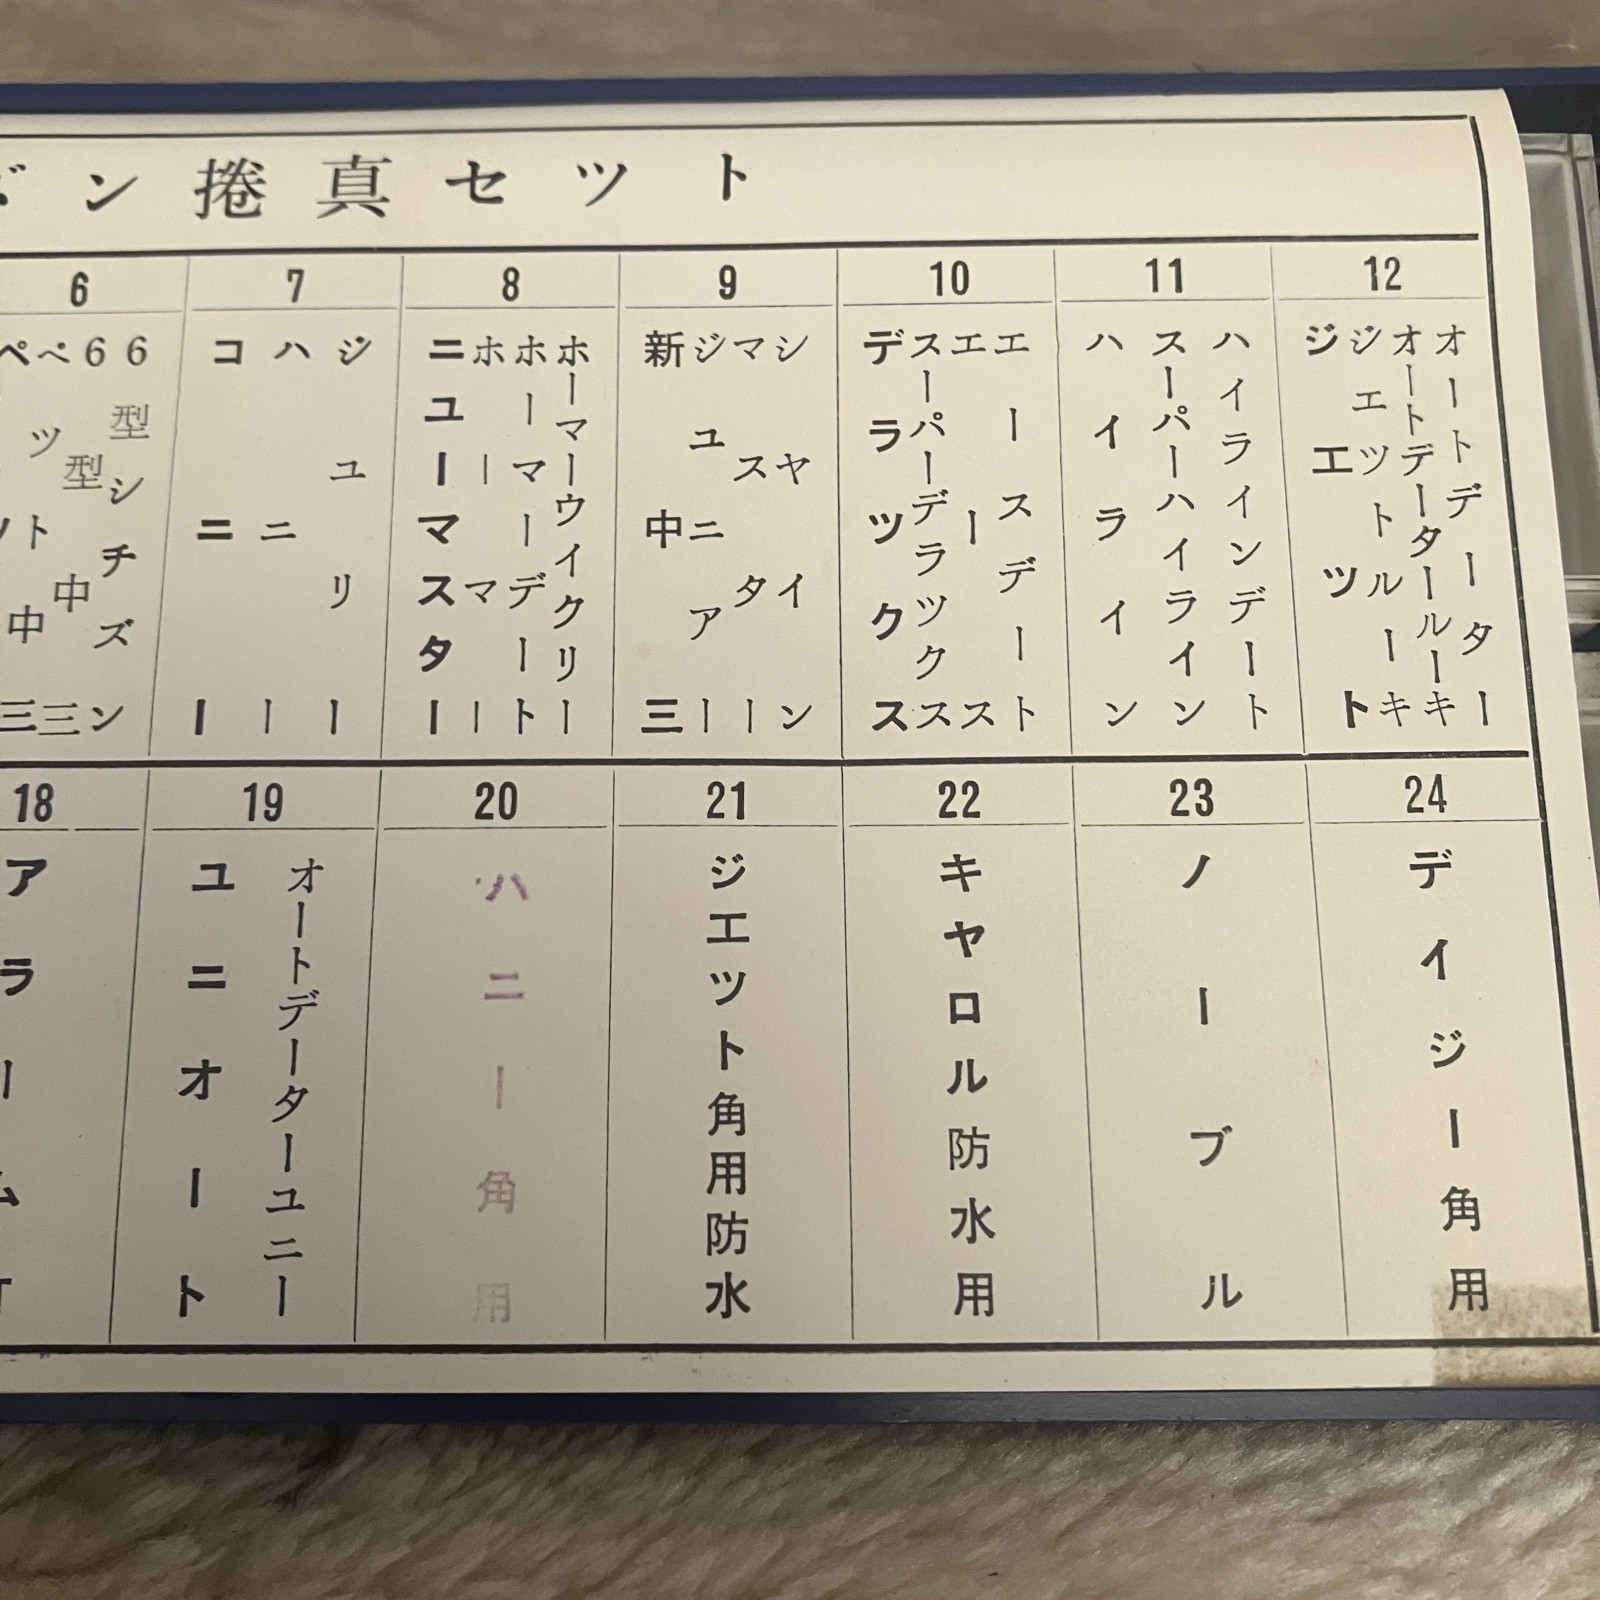 ン捲真セット
6
6型シチズン
6型中三
ペット中三
7
ジユリー
ハニー
コニー
8
ホーマーウイクリー
ホーマーデート
ホーマー
ニユーマスター
9
シヤイン
マスター
ジユニアー
新中三
10
エースデート
エース
スーパーデラツクス
デラツクス
11
ハイラインデート
スーパーハイライン
ハイライン
12
オートデーター
オートデータールーキー
ジエツトルーキー
ジエツト
18
アラーム
19
オートデーターユニー
ユニオート
20
ハニー角用
21
ジエツト角用防水
22
キヤロル防水用
23
ノーブル
24
デイジー角用